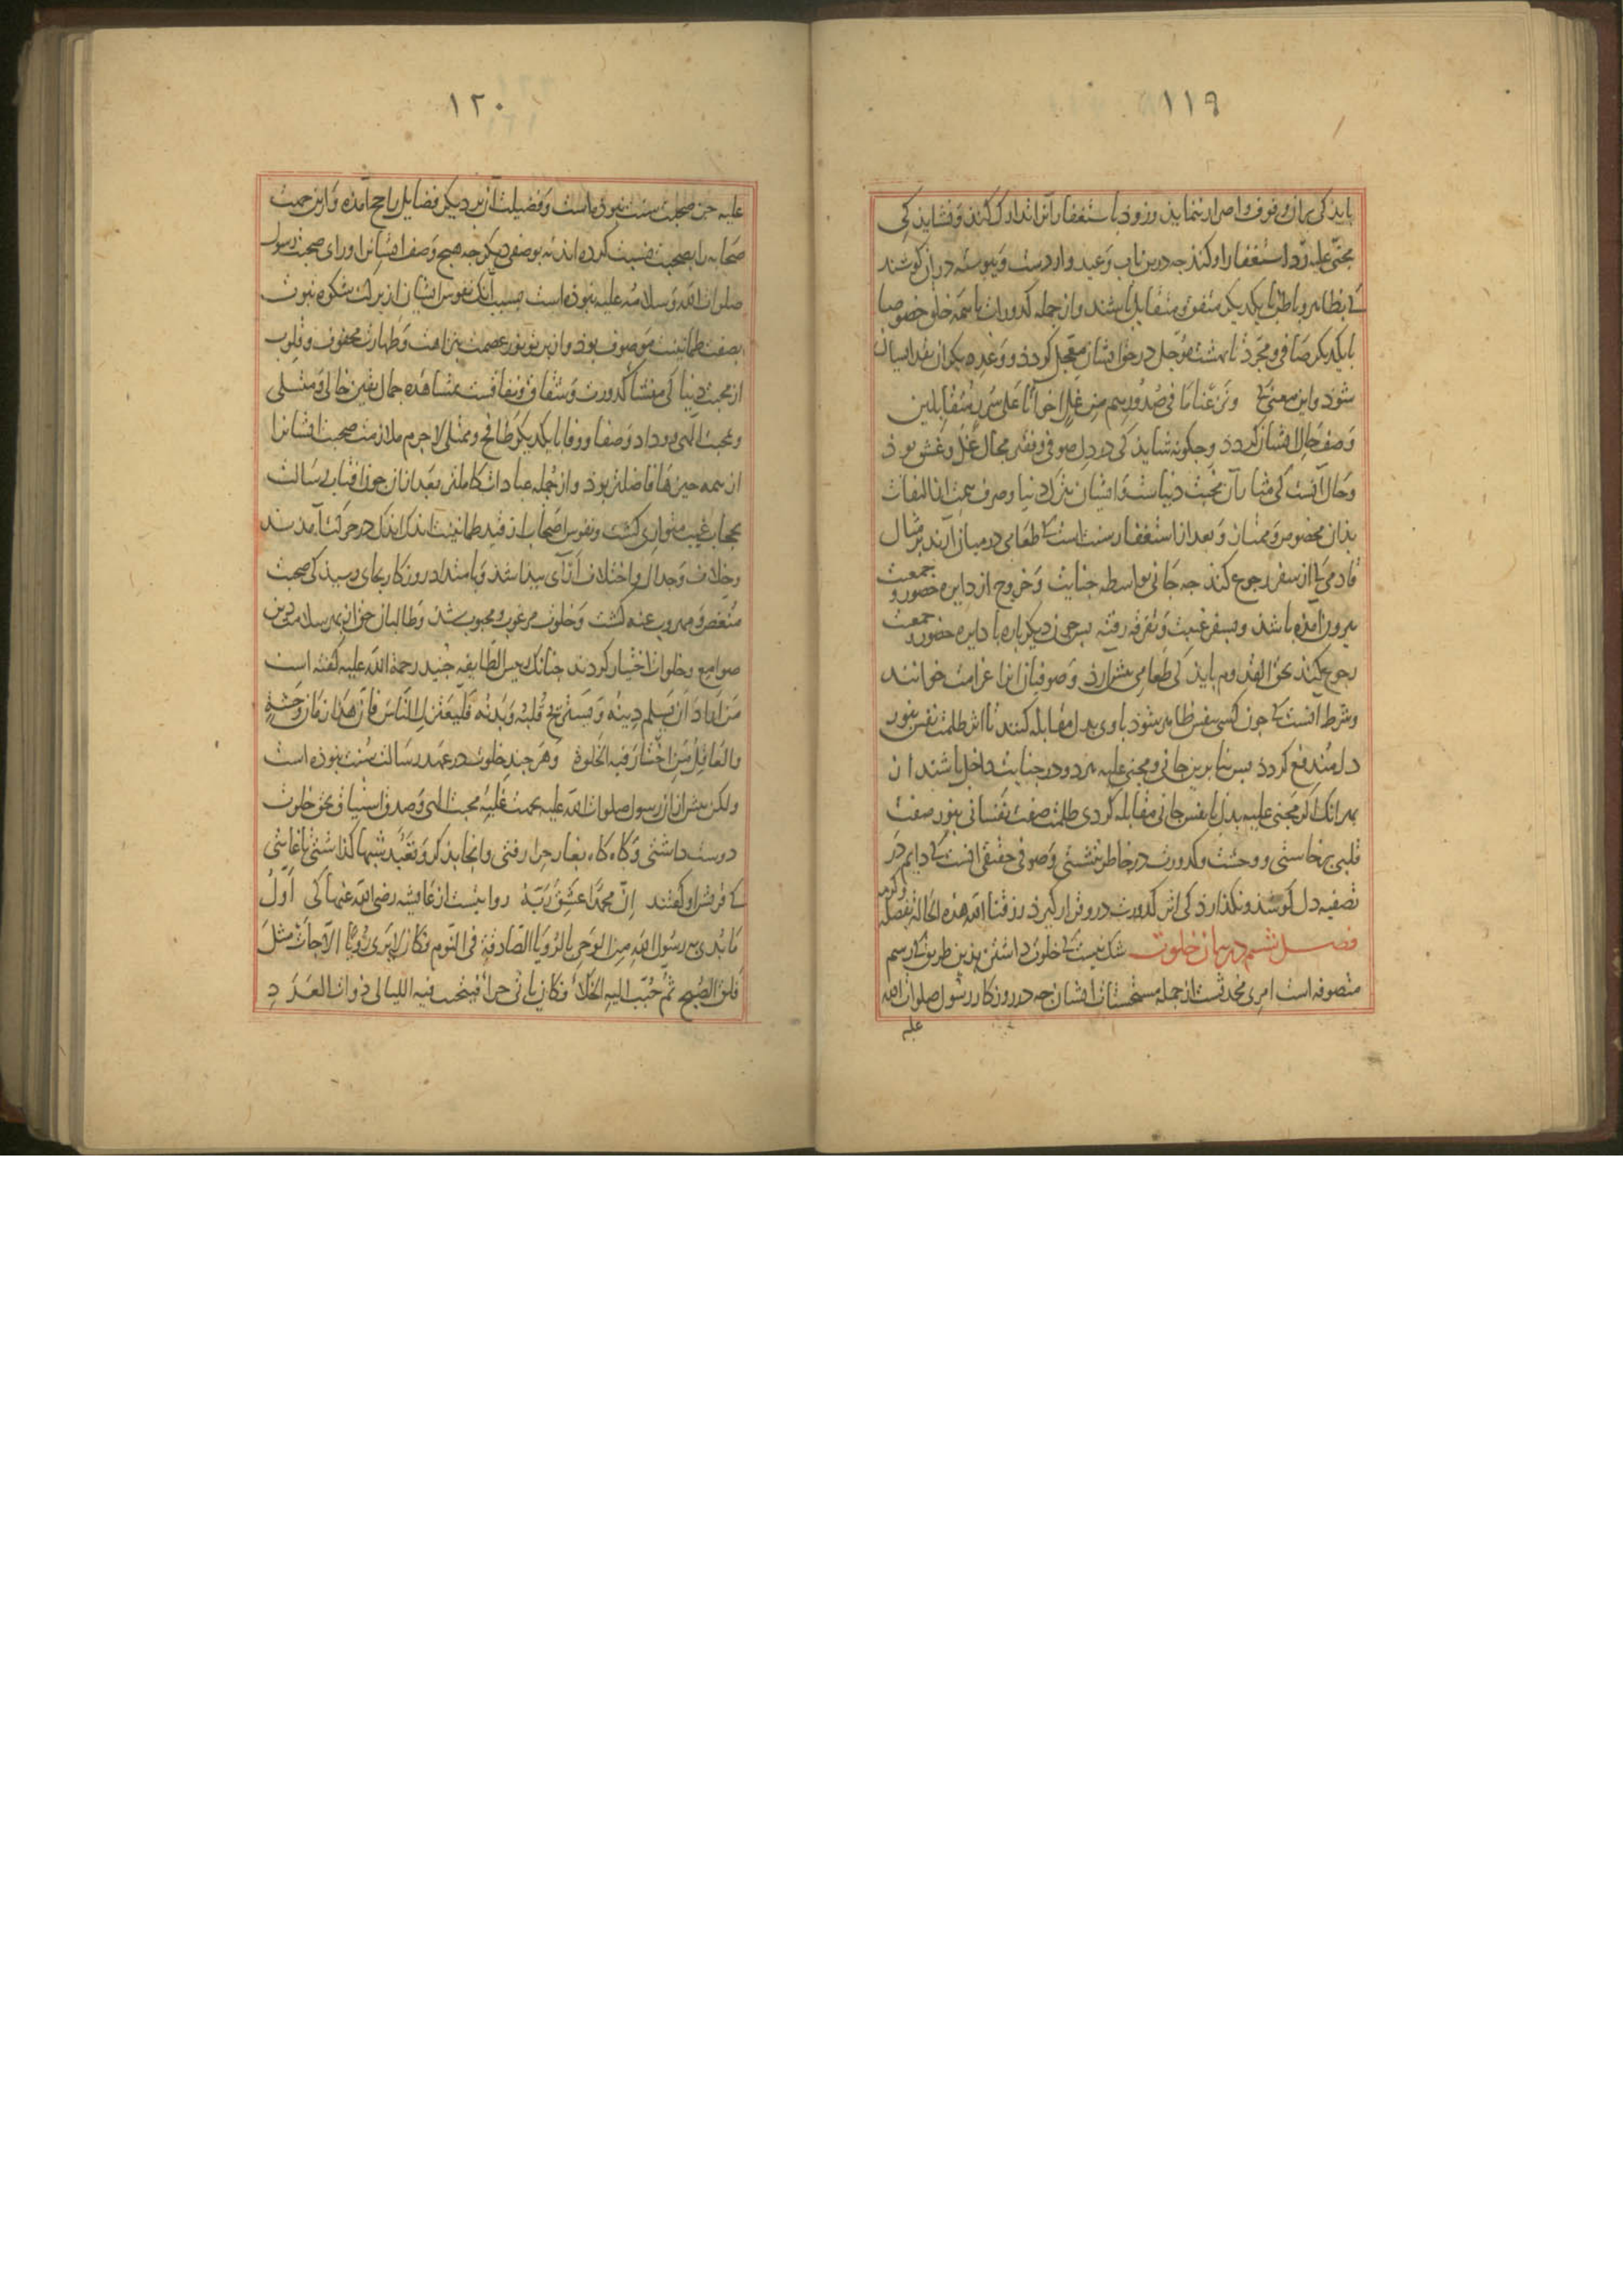 ١١٩
باید کی بران وقوف و اصرار ننماید و زود باستغفار آنرا تدارک کند و نشاید کی
مجنی علیه رد استغفار او کند چه درین باب وعید واردست و پیوسته در آن کوشند
کی بظاهر و باطن با یکدیگر متفق و متقابل باشند و از جمله کدورات با همه خلق خصوصا
با یکدیگر صافی و مجرد تا بهشت موجل در حق ایشان معجل گردد و وعده دیگران نقد ایشان
شود و این معنی کی ونزعنا ما فی صدورهم من غل اخوانا علی سرر متقابلین
وصف حال ایشان گردد و چگونه شاید کی در دل صوفی و فقیر مجال غل و غش بود
و حال آنست کی مثار آن محبت دنیاست و ایشان بترک دنیا و صرف همت از التفات
بدان مخصوص و ممتاز و بعد از استغفار سنت است کی طعامی در میان آرند بر مثال
قادمی کی از سفر رجوع کند چه جانی بواسطه جنایت و خروج از دایره حضور و جمعیت
بیرون آمده باشد و بسفر غیبت و تفرقه رفته پس چون دیگر باره با دایره حضور و جمعیت
رجوع کند بحق القدوم باید کی طعامی پیش آرد و صوفیان آنرا غرامت خوانند
و شرط آنست کی چون کسی بنفس ظاهر شود با وی بدل مقابله کنند تا اثر ظلمت نفس بنور
دل مندفع گردد پس بنا برین جانی و مجنی علیه هر دو در جنایت داخل باشند از
بهر آنک اگر مجنی علیه بدل با نفس جانی مقابله کردی ظلمت صفت نفسانی بنور صفت
قلبی برخاستی و وحشت و کدورت در خاطر ننشستی و صوفی حقیقی آنست کی دایم در
تصفیه دل کوشد و نگذارد کی اثر کدورت درو قرار گیرد رزقنا الله هذه الحالة بفضله و کرمه
فصل ششم در بیان خلوت شک نیست کی خلوت داشتن برین طریق کی رسم
متصوفه است امری محدثست از جمله مستحسنات ایشان چه در روزگار رسول صلوات الله
علیه
١٢٠
علیه جز صحبت سنت نبوده است و فضیلت آن بر دیگر فضایل راجح آمده و ازین جهت
صحابه را بصحبت نسبت کرده‌اند نه بوصفی دیگر چه هیچ وصف ایشانرا ورای صحبت رسول
صلوات الله و سلامه علیه نبوده است بسبب آنک نفوس ایشان از برکت شکوه نبوت
بصفت طمانینت موصوف بود و از پرتو نور عصمت بنزاهت و طهارت محفوف و قلوب
از محبت دنیا کی منشأ کدورت و شقاق و نفاقست بمشاهده جمال یقین خالی و متسلی
و بمحبت الهی و وداد و صفا و وفا با یکدیگر طافح و ممتلی لاجرم ملازمت صحبت ایشانرا
از همه چیزها فاضلتر بود و از جمله عبادات کاملتر بعد از آن چون آفتاب رسالت
بحجاب غیب متواری گشت و نفوس اصحاب از قید طمانینت اندک اندک در حرکت آمدند
و خلاف و جدال و اختلاف آرای پیدا شد و بامتداد روزگار بجای رسید کی صحبت
منغص و مهروب عنه گشت و خلوت مرغوب و محبوب شد و طالبان حق از بهر سلامت دین
صوامع و خلوات اختیار کردند چنانک رئیس الطایفه جنید رحمة الله علیه گفته است
من اراد ان یسلم دینه ویستریح قلبه وبدنه فلیعتزل الناس فان هذا زمان وحشة
والعاقل من اختار فیه الخلوة و هر چند خلوت در عهد رسالت سنت نبوده است
ولکن پیش از آن رسول صلوات الله علیه بجهت غلبه محبت الهی و صدق اشتیاق بحق خلوت
دوست داشتی و گاه گاه بغار حرا رفتی و آنجا بذکر و تعبد شبها گذاشتی تا غایتی
کی قریش او گفتند ان محمدا عشق ربه روایتست از عایشه رضی الله عنها کی اول
ما بدئ به رسول الله من الوحی الرؤیا الصادقة فی النوم فکان لا یری رؤیا الا جاءت مثل
فلق الصبح ثم حبب الیه الخلاء فکان یاتی حراء فیتحنث فیه اللیالی ذوات العدد